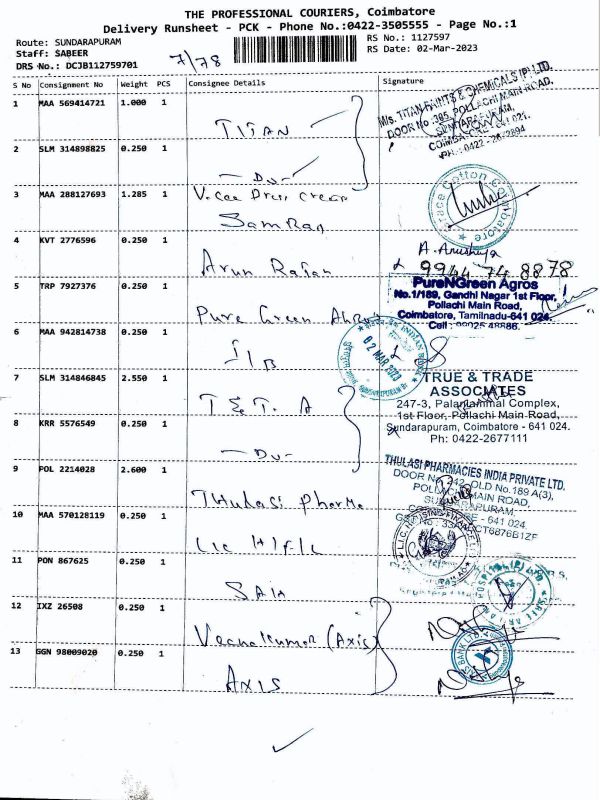 THE PROFESSIONAL COURIERS, Coimbatore
Delivery Runsheet - PCK - Phone No.:0422-3505555 - Page No.:1
Route: SUNDARAPURAM
RS No.: 1127597
Staff: SABEER
RS Date: 02-Mar-2023
DRS No.: DCJB112759701
7/78
S No Consignment No Weight PCS Consignee Details Signature
1 MAA 569414721 1.000 1
TITAN
M/s. TITAN PAINTS & CHEMICALS (P) LTD.
DOOR No :385, POLLACHI MAIN ROAD,
SUNDARAPURAM,
COIMBATORE - 641 021.
PH.: 0422-2672894
2 SLM 314898825 0.250 1
- Du -
3 MAA 288127693 1.285 1
SamRag
Grace Cotton Coimbatore
4 KVT 2776596 0.250 1
Arun Rajan
A. Anushya
9944 74 8878
5 TRP 7927376 0.250 1
Pure Green
PureNGreen Agros
No.1/189, Gandhi Nagar 1st Floor,
Pollachi Main Road,
Coimbatore, Tamilnadu-641 024.
Cell : 99025 48886.
6 MAA 942814738 0.250 1
IIB
INDIAN BANK
02 MAR 2023
7 SLM 314846845 2.550 1
T & T. A
TRUE & TRADE
ASSOCIATES
247-3, Palaniammal Complex,
1st Floor, Pollachi Main Road,
Sundarapuram, Coimbatore - 641 024.
Ph: 0422-2677111
8 KRR 5576549 0.250 1
- Du -
9 POL 2214028 2.600 1
Thulasi Pharma
THULASI PHARMACIES INDIA PRIVATE LTD.
DOOR No.242, OLD No.189 A(3),
POLLACHI MAIN ROAD,
SUNDARAPURAM,
COIMBATORE - 641 024.
10 MAA 570128119 0.250 1
Lic H/F/L
L.I.C. HOUSING FINANCE
11 PON 867625 0.250 1
HOSPITAL (P) LTD
12 IXZ 26508 0.250 1
Veenakumar (Axis)
13 GGN 98009020 0.250 1
AXIS
AXIS BANK LTD